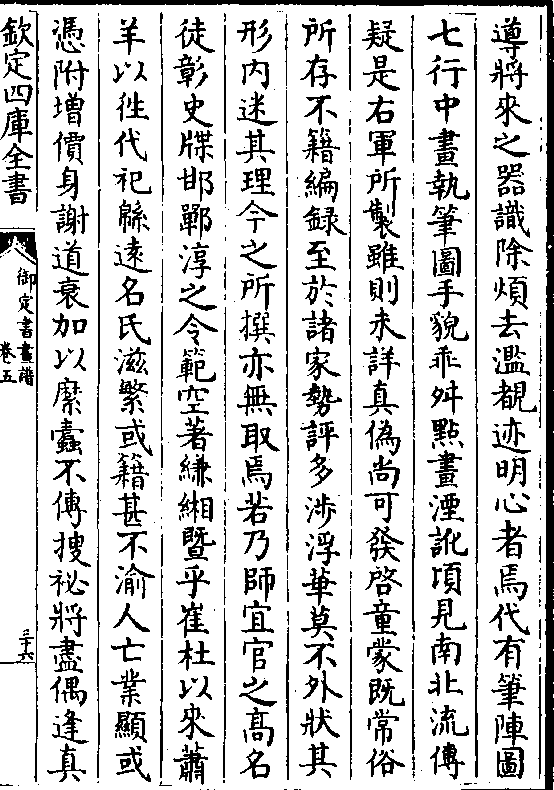 導將來之器識除煩去濫覩迹明心者焉代有筆陣圖
七行中畫執筆圖手貌乖舛㸃畫湮訛頃見南北流傳
疑是右軍所製雖則未詳真偽尚可發啓童蒙既常俗
所存不籍編録至於諸家勢評多涉浮華莫不外狀其
形内迷其理今之所撰亦無取焉若乃師宜官之髙名
徒彰史牒邯鄲淳之令範空著縑緗暨乎崔杜以來蕭
羊以徃代祀緜遠名氏滋繁或籍甚不渝人亡業顯或
憑附增價身謝道衰加以糜蠧不傳搜祕將盡偶逢真
欽定四庫全書
御定書畫譜
卷五
三十六